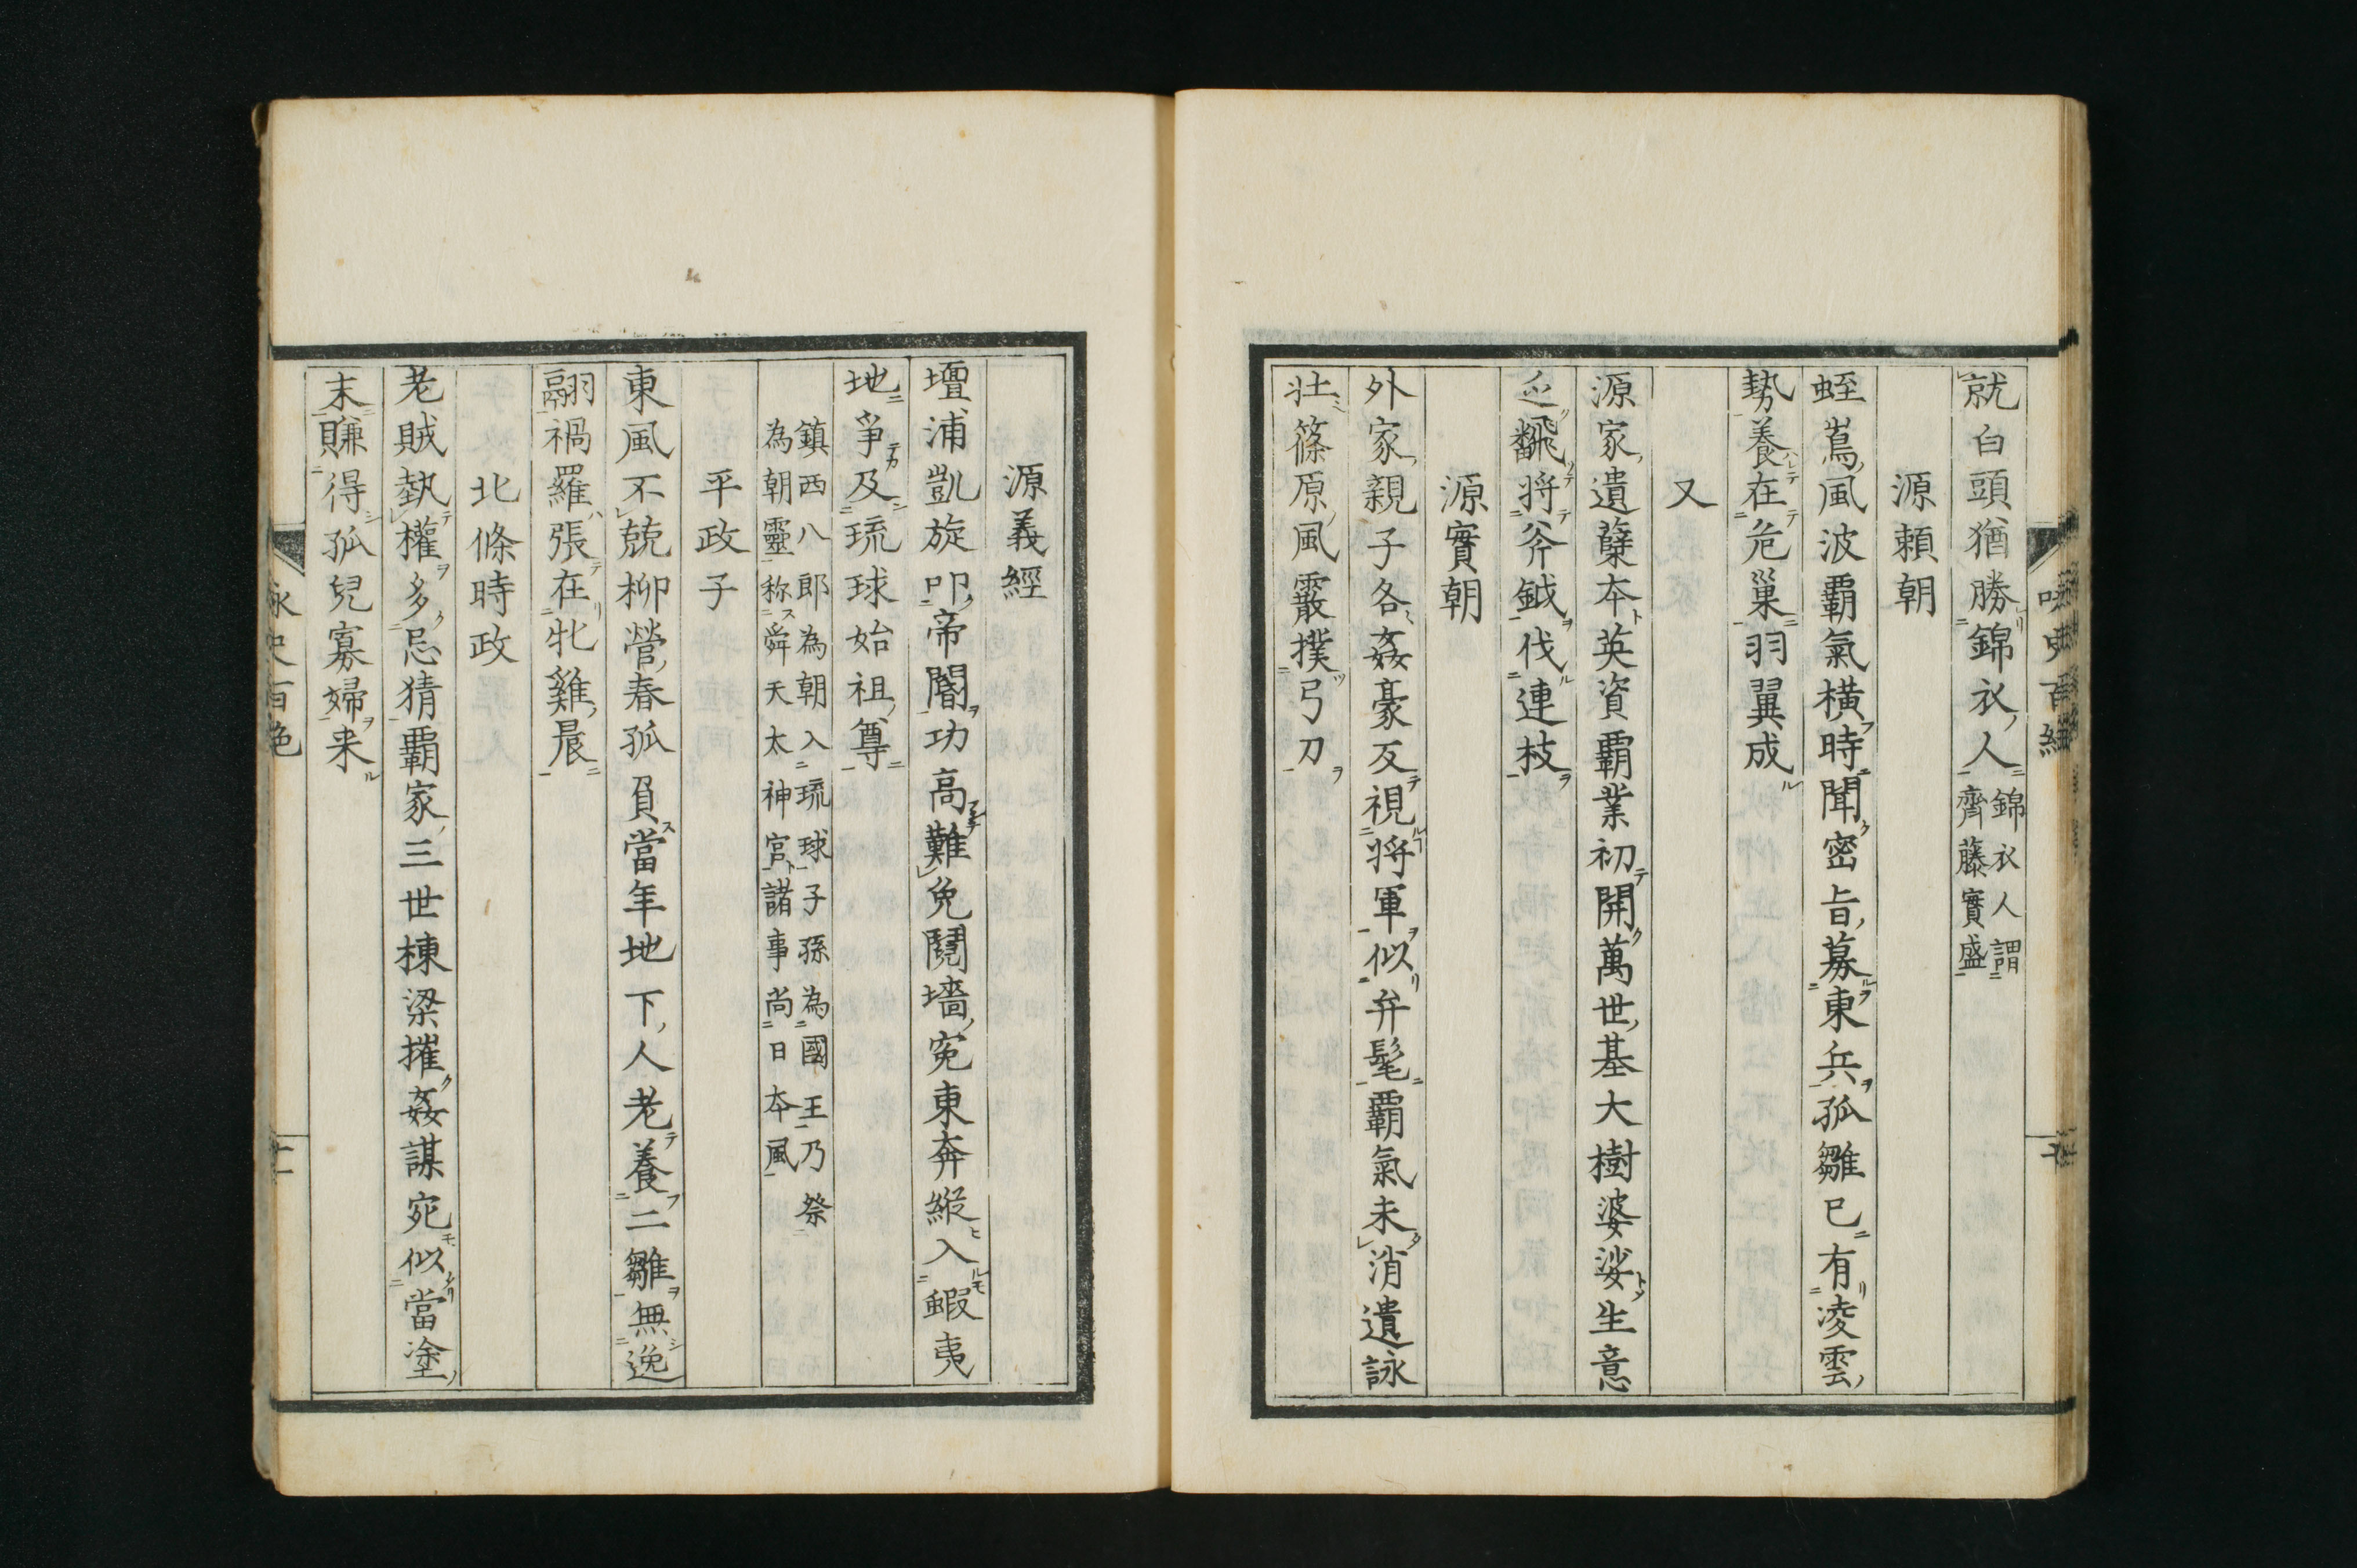 就白頭猶勝錦衣人錦衣人謂
齊藤實盛
源頼朝
蛭嶌風波覇氣橫時聞密旨募東兵孤雛已有凌雲
勢養在危巢羽翼成
又
源家遺蘖本英資覇業初開萬世基大樹婆娑生意
將斧鉞伐連枝
源實朝
外家親子各姦豪反視將軍似弁髦覇氣未消遺詠
壮篠原風霰撲弓刀
源義經
壇浦凱旋叩帝閽功高難免鬩墻寃東奔縱入蝦夷
地爭及琉球始祖尊
鎮西八郎為朝入琉球子孫為國王乃祭
為朝靈称舜天太神宮諸事尚日本風
平政子
東風不競柳營春孤負當年地下人老養二雛無逸
翮禍羅張在牝雞晨
北條時政
老賊執權多忌猜覇家三世棟梁摧姦謀宛似當塗
末賺得孤兒寡婦来
詠史百絶